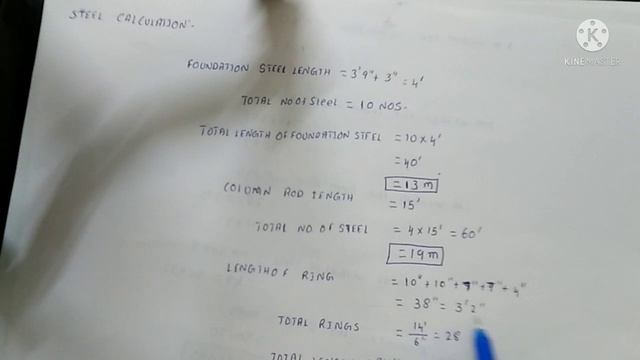 STEEL CALCULATION:-
KINEMASTER
FOUNDATION STEEL LENGTH = 3'9"+ 3" = 4'
TOTAL NO OF STEEL = 10 NOS.
TOTAL LENGTH OF FOUNDATION STEEL = 10 x 4'
= 40'
= 13 m
COLUMN ROD LENGTH = 15'
TOTAL NO OF STEEL = 4 x 15' = 60'
= 19 m
LENGTH OF RING = 10" + 10" + 7" + 7" + 4"
= 38" = 3'2"
TOTAL RINGS = 14'/6" = 28